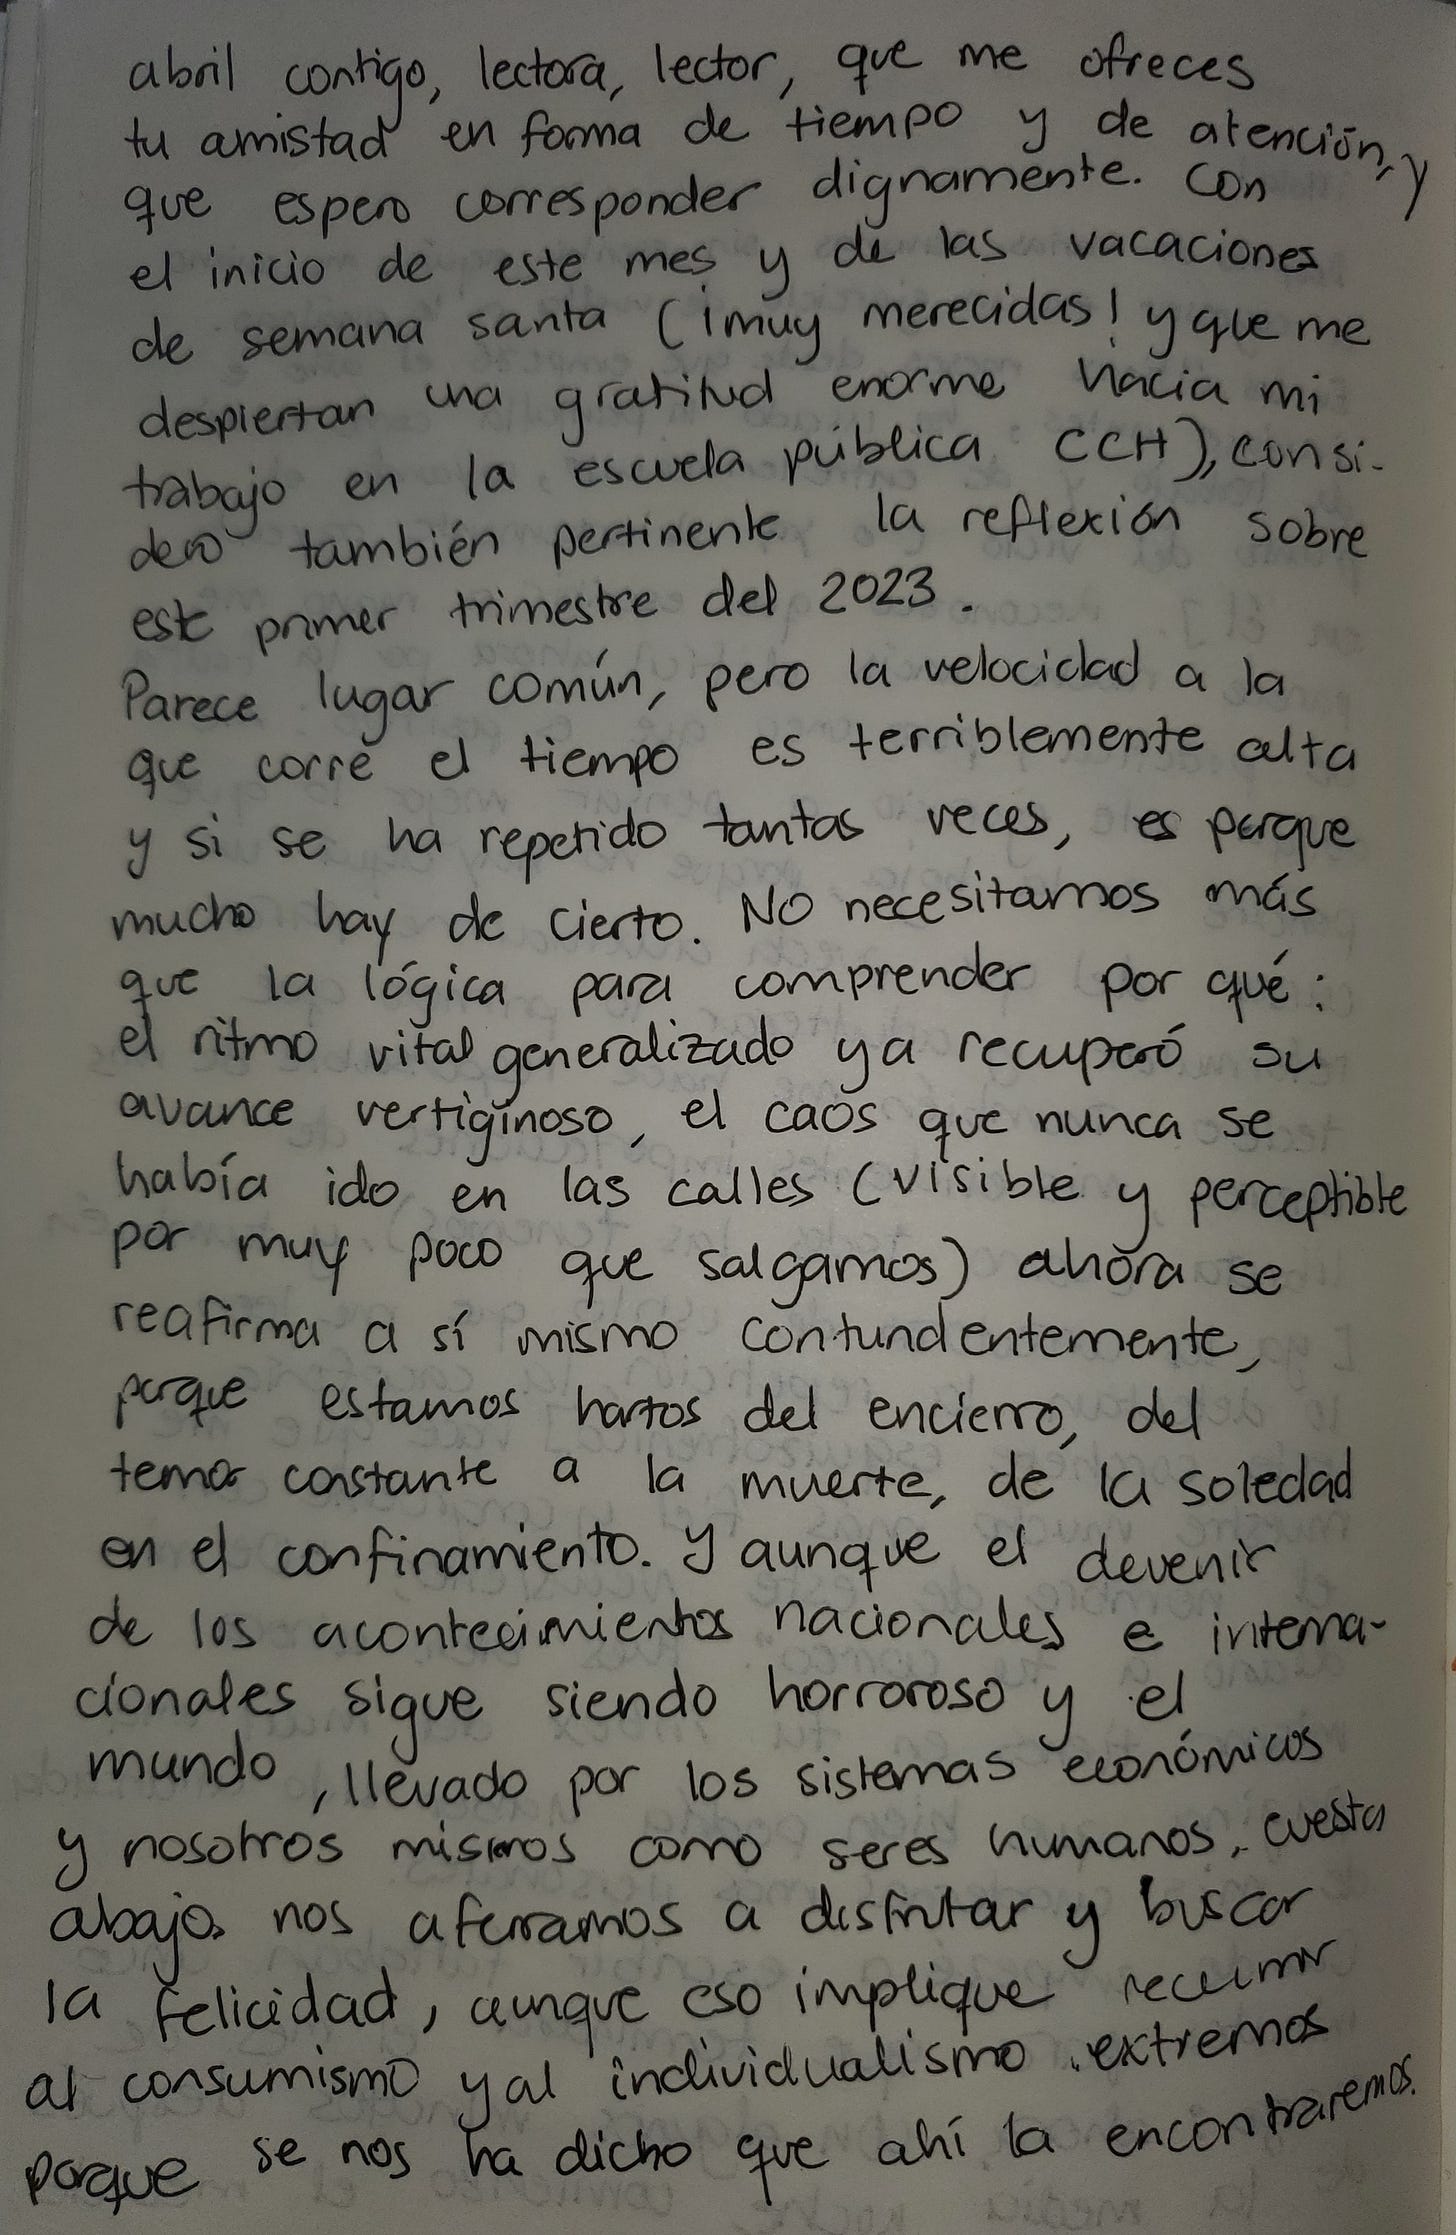 abril contigo, lectora, lector, que me ofreces
tu amistad en forma de tiempo y de atención, y
que espero corresponder dignamente. Con
el inicio de este mes y de las vacaciones
de semana santa (¡muy merecidas! y que me
despiertan una gratitud enorme hacia mi
trabajo en la escuela pública CCH), consi-
dero también pertinente la reflexión sobre
este primer trimestre del 2023.
Parece lugar común, pero la velocidad a la
que corre el tiempo es terriblemente alta
y si se ha repetido tantas veces, es porque
mucho hay de cierto. No necesitamos más
que la lógica para comprender por qué:
el ritmo vital generalizado ya recuperó su
avance vertiginoso, el caos que nunca se
había ido en las calles (visible y perceptible
por muy poco que salgamos) ahora se
reafirma a sí mismo contundentemente,
porque estamos hartos del encierro, del
temor constante a la muerte, de la soledad
en el confinamiento. Y aunque el devenir
de los acontecimientos nacionales e interna-
cionales sigue siendo horroroso y el
mundo, llevado por los sistemas económicos
y nosotros mismos como seres humanos, cuesta
abajo, nos aferramos a disfrutar y buscar
la felicidad, aunque eso implique recurrir
al consumismo y al individualismo extremos
porque se nos ha dicho que ahí la encontraremos.